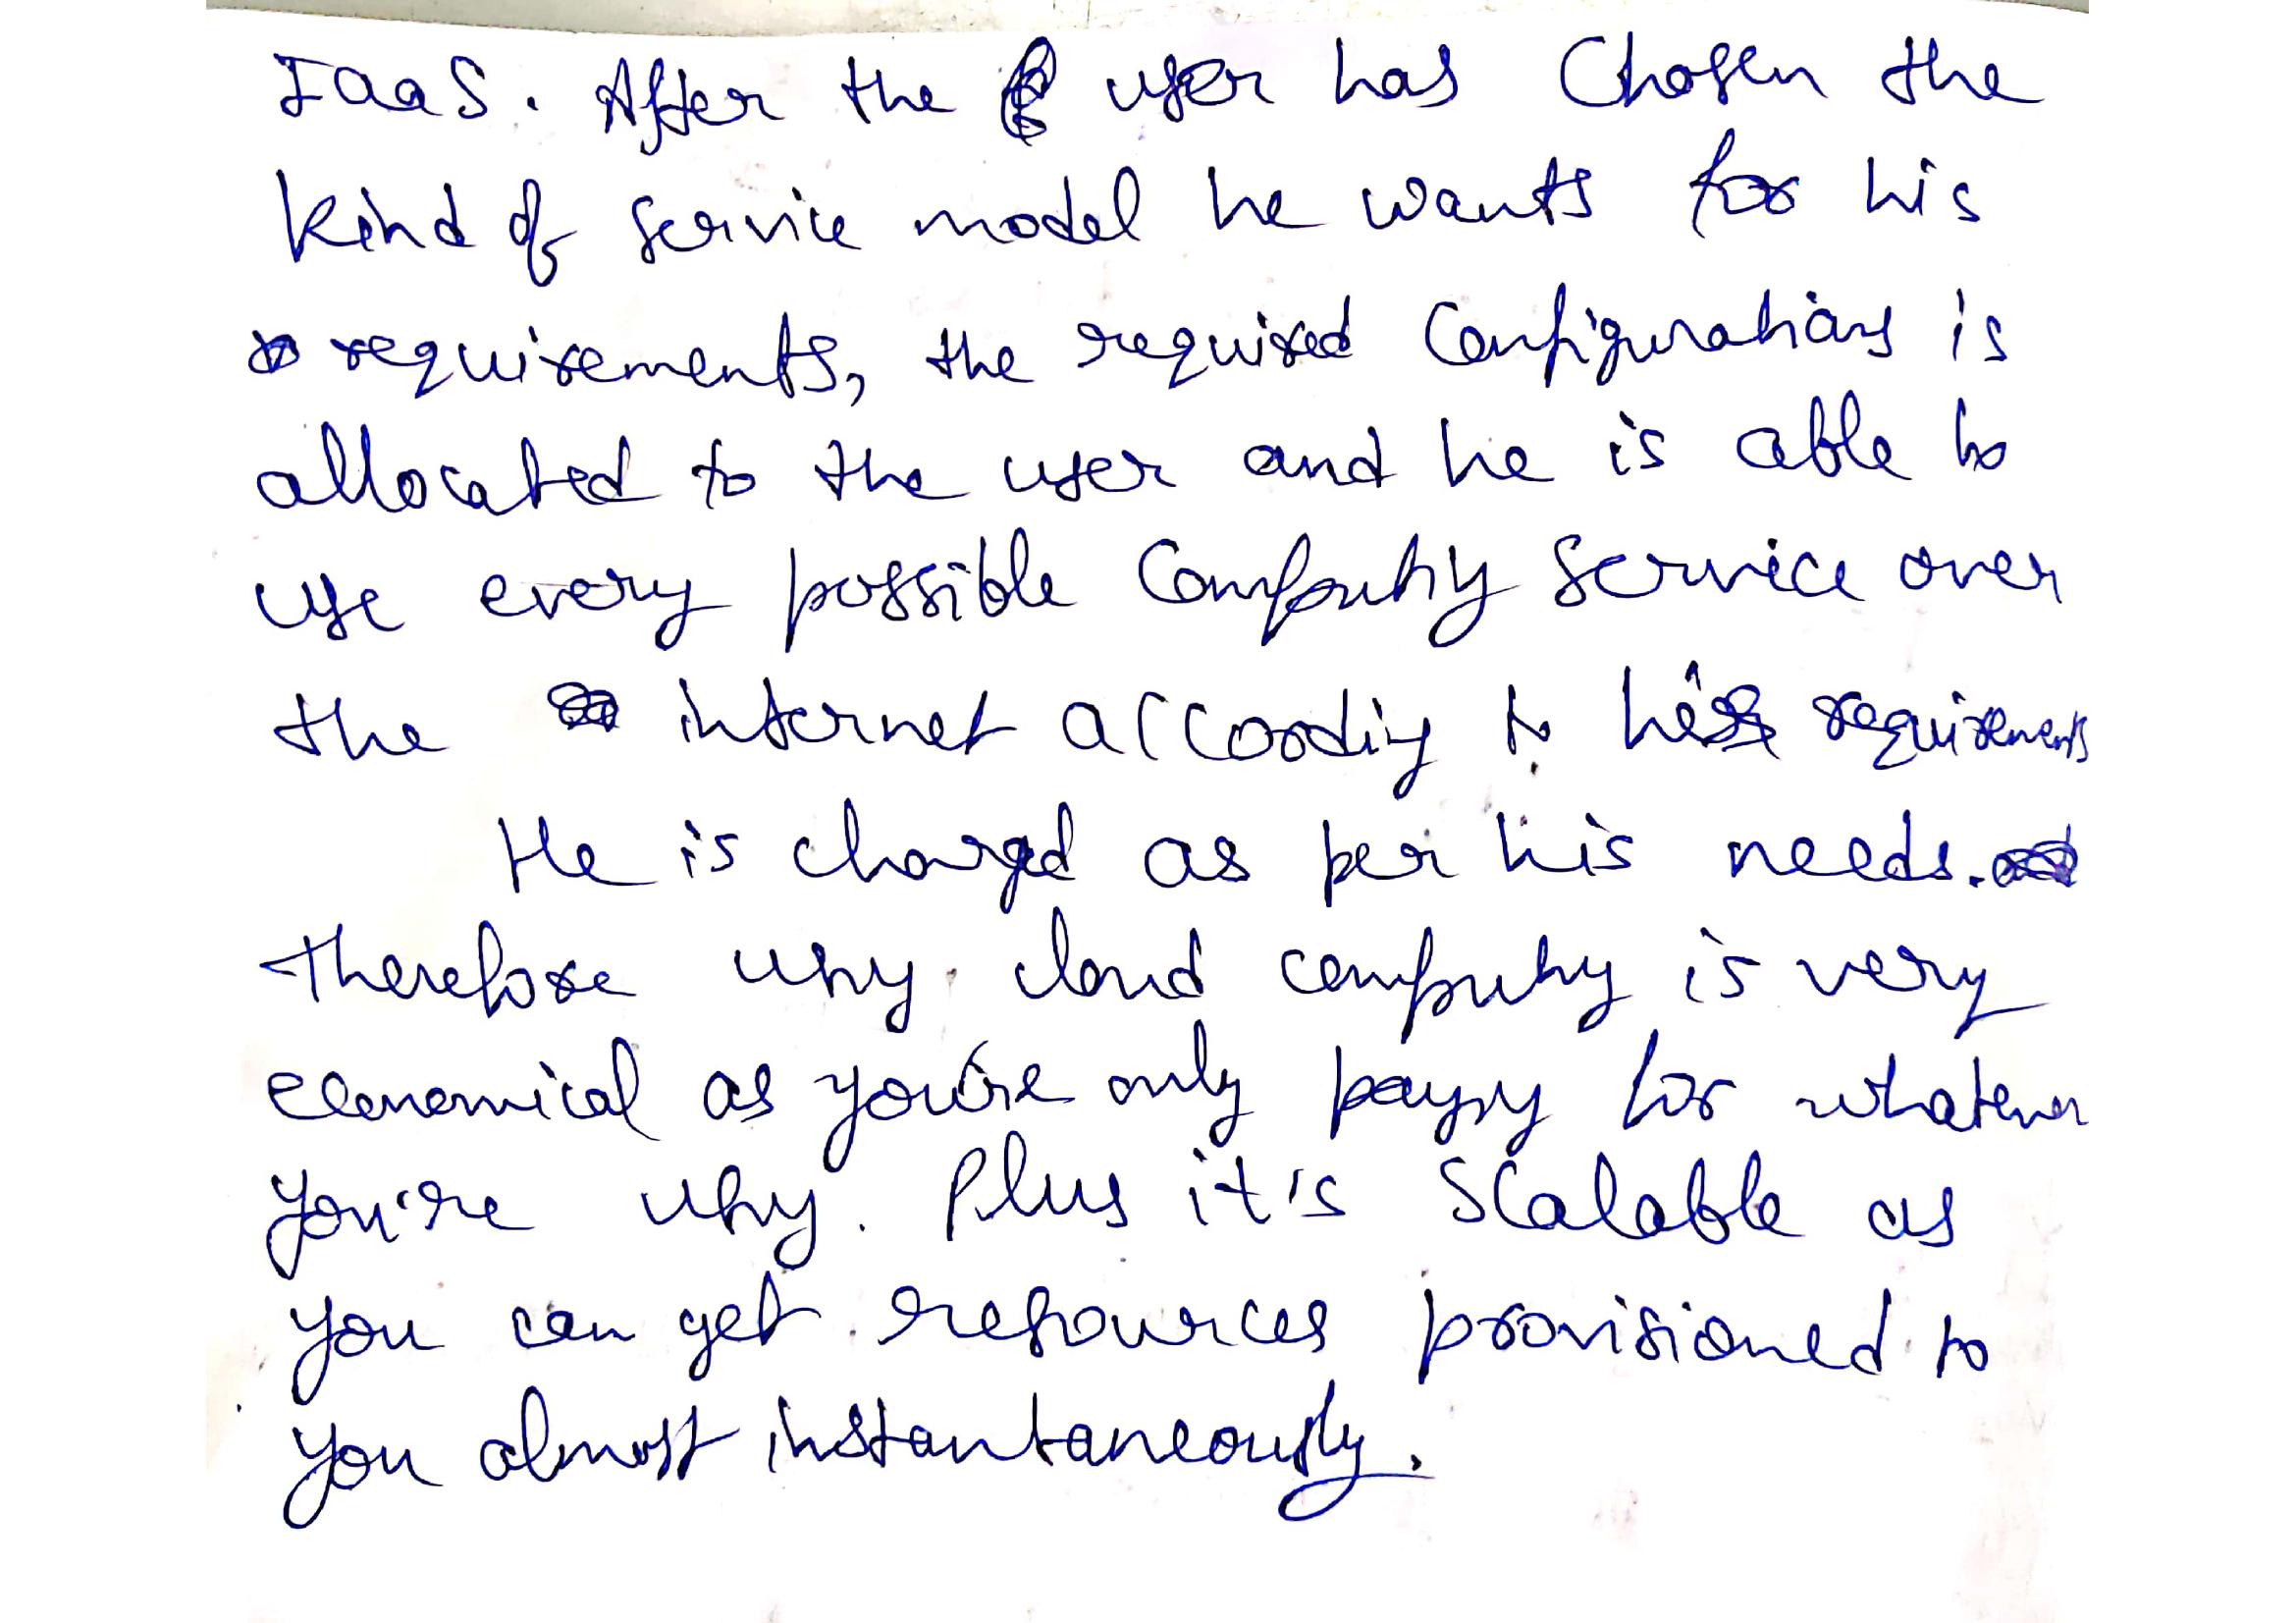 IaaS. After the user has Chosen the
kind of service model he wants for his
requirements, the required Configurations is
allocated to the user and he is able to
use every possible Computing Service over
the internet according to his requirements
He is charged as per his needs.
therefore using cloud computing is very
economical as you're only paying for whatever
you're using. Plus it's Scalable as
you can get resources provisioned to
you almost instantaneously.